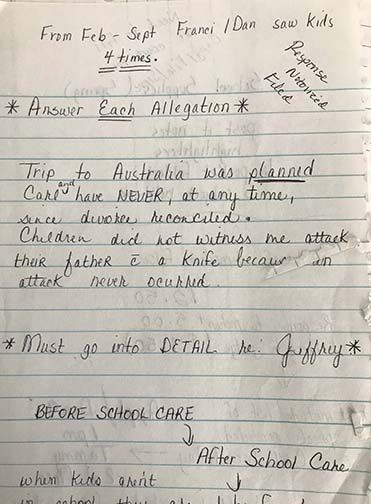 From Feb - Sept Franci / Dan saw kids
4 times.
Response
Notorized
Filed
* Answer Each Allegation *
Trip to Australia was planned
Carl and have NEVER, at any time,
since divorce reconciled.
Children did not witness me attack
their father c̄ a Knife because an
attack never ocurred.
* Must go into DETAIL re: Jeffrey *
BEFORE SCHOOL CARE
After School Care
when kids aren't
in school they